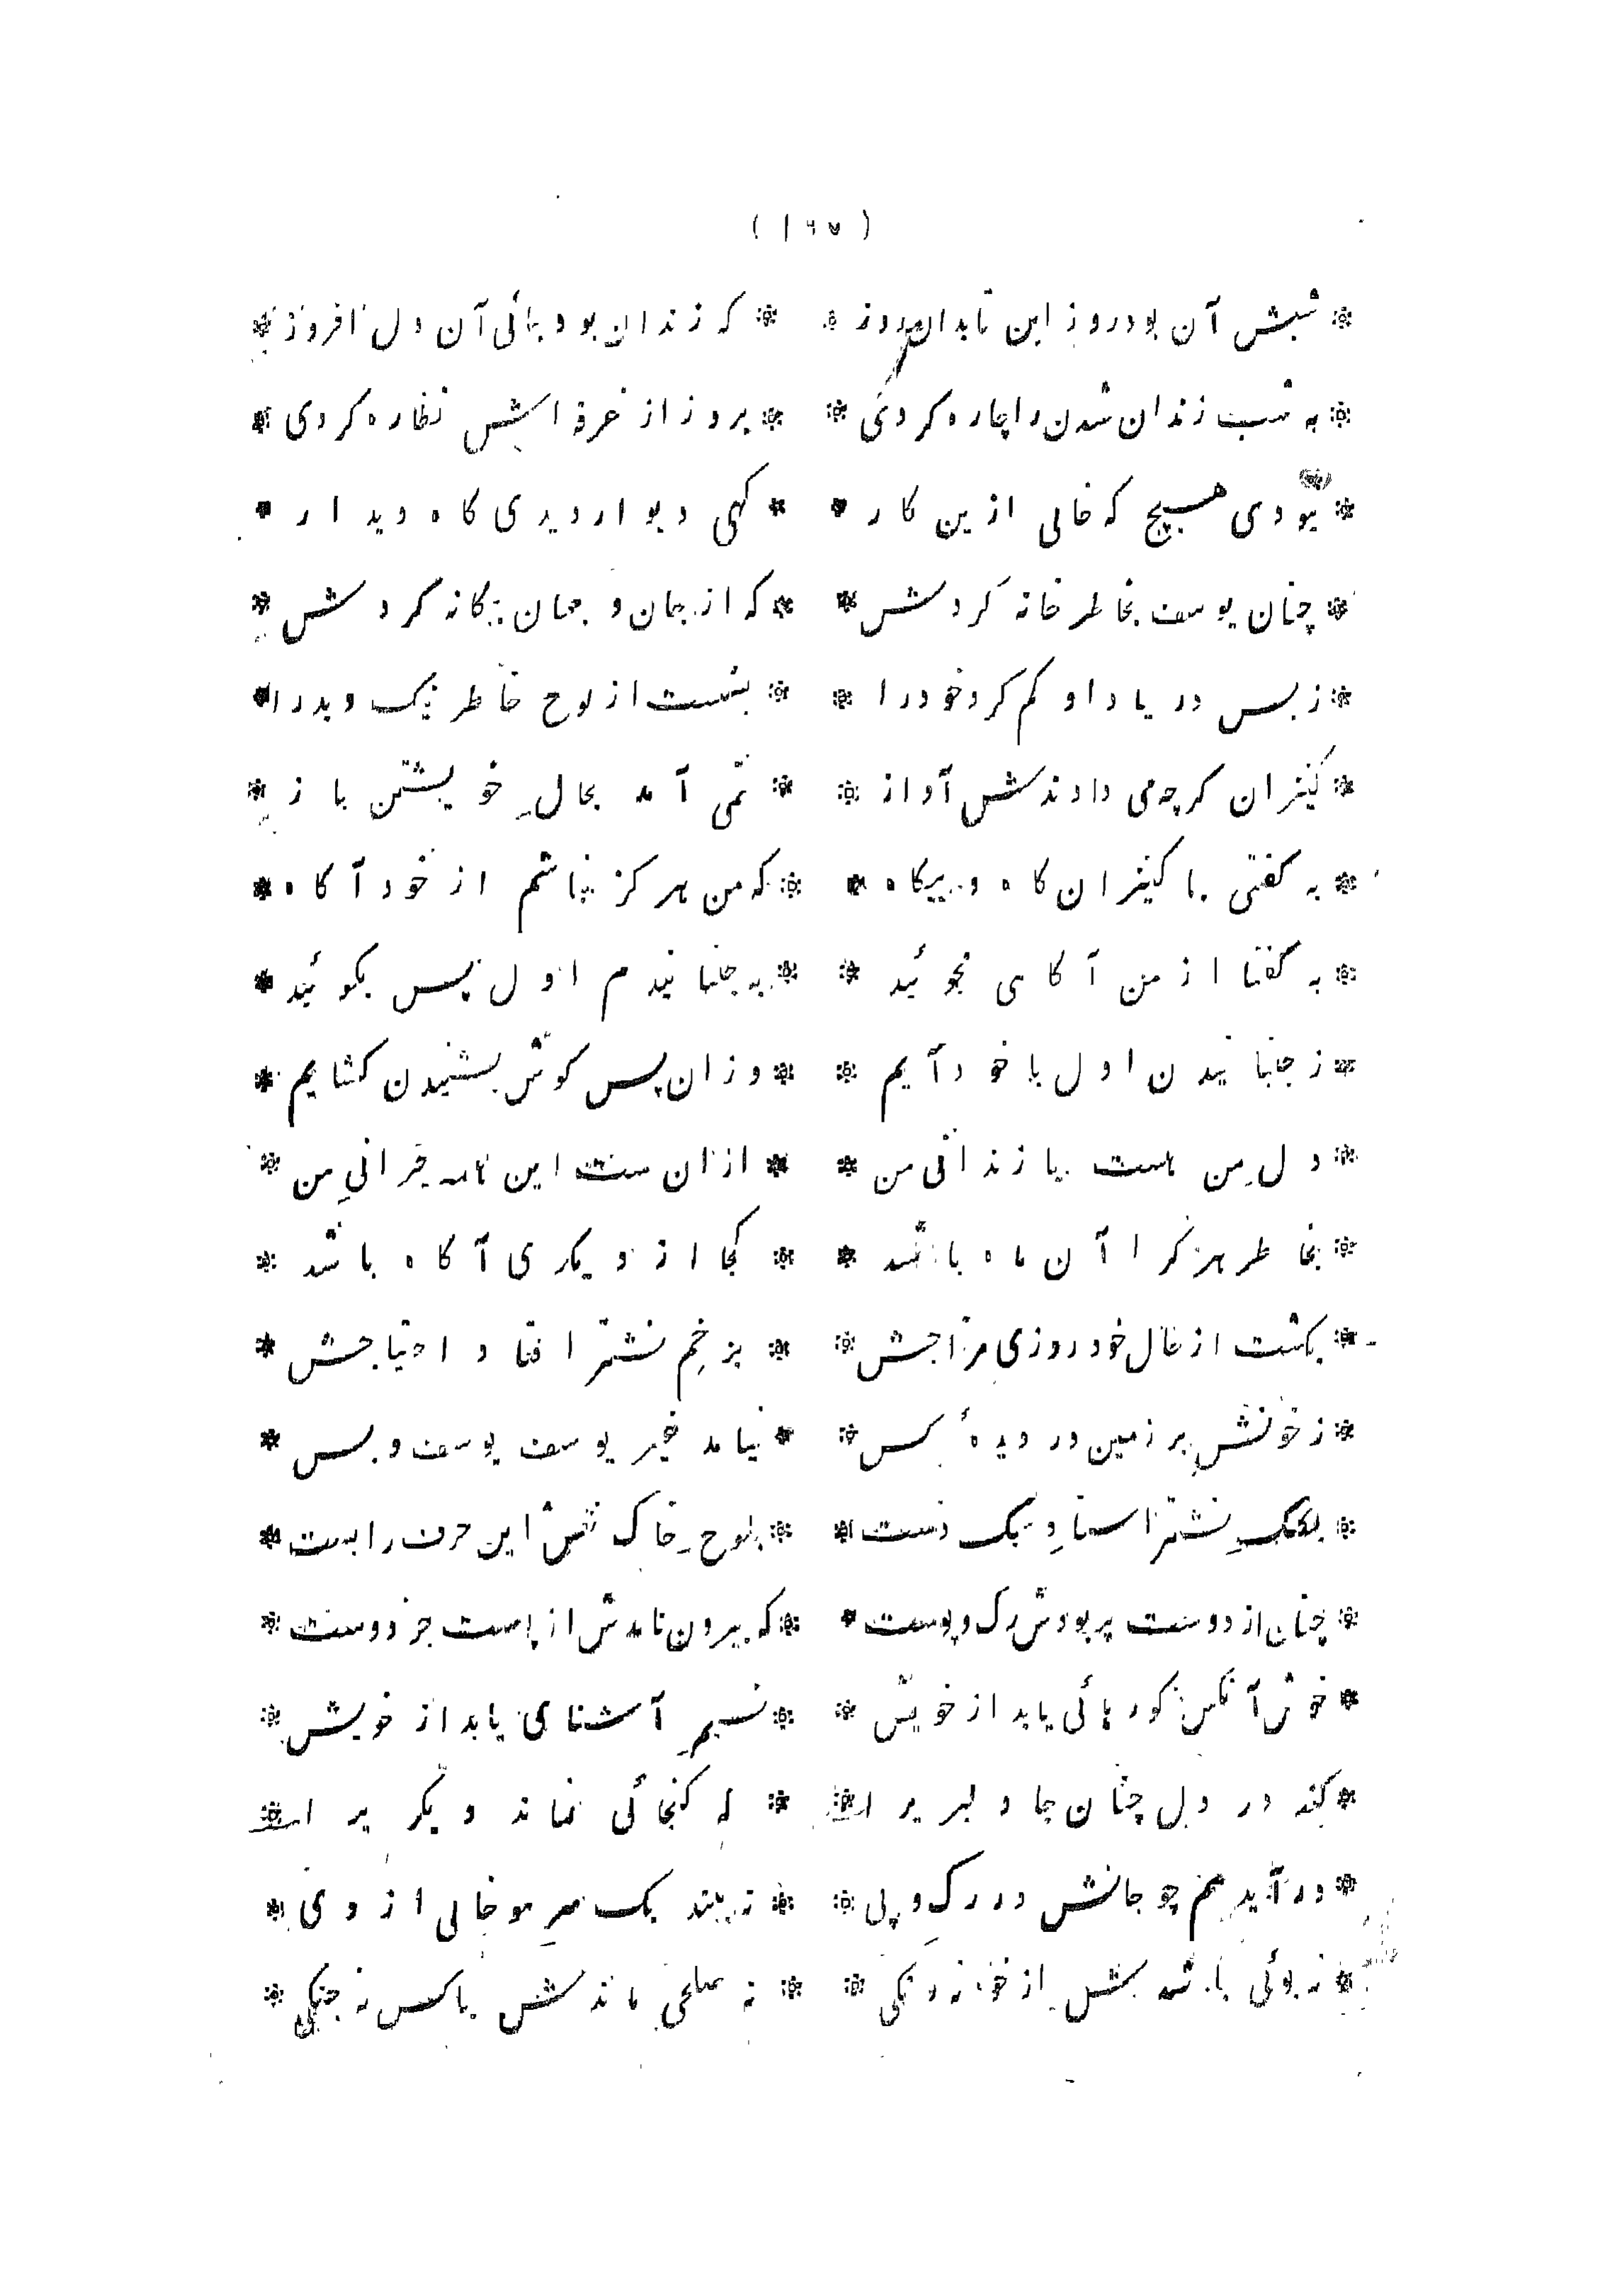 ( ۱۶۷ )
* شبش آن بود روز این تابدان روز * * که زندان بود جائی آن دل افروز *
* به شب زندان شدن را چاره کردی * * بروز از غرفه اش نظاره کردی *
* نبودی هیچ که خالی ازین کار * * کهی دیوار دیدی کاه دیدار *
* چنان یوسف بخاطر خانه کردش * * که از جان و جهان بیکانه کردش *
* زبس در یاد او کم کرد خود را * * بشست از لوح خاطر نیک و بد را *
* کنیزان کرچه می دادندش آواز * * نمی آمد بحالِ خویشتن باز *
* به کفتی با کنیزان کاه و بیکاه * * که من هرکز نباشم از خود آکاه *
* به کفتا از من آکاهی مجوئید * * به جنبانیدم اول پس بکوئید *
* ز جنبانیدن اول با خود آیم * * وزان پس کوش بشنیدن کشایم *
* دلِ من هست با زندانی من * * ازان ست این همه حیرانیِ من *
* بخاطر هر کرا آن ماه باشد * * کجا از دیکری آکاه باشد *
* بکشت از حال خود روزی مزاجش * * بزخم نشتر افتاد احتیاجش *
* ز خونش بر زمین در دیدهٔ کس * * نیامد غیر یوسف یوسف و بس *
* بکلکِ نشتر استادِ سبک دست * * بلوحِ خاک نقش این حرف را بست *
* چنان از دوست پر بودش رک و پوست * * که بیرون نامدش از پوست جز دوست *
* خوش آنکس کو رهائی یابد از خویش * * نسیمِ آشنائی یابد از خویش *
* کند در دل چنان جا دلبریرا * * که کنجائی نماند دیکریرا *
* درآید هم چو جانش در رک و پی * * نه بیند یک سرِ مو خالی از وی *
* نه بوئی باشدش از خود نه رنکی * * نه صلحی ماندش با کس نه جنکی *